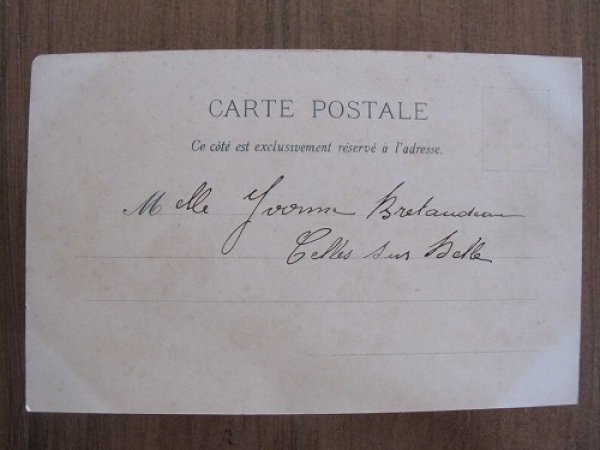 CARTE POSTALE
Ce côté est exclusivement réservé à l'adresse.
Melle Yvonne Bretaudeau
Celles sur Belle